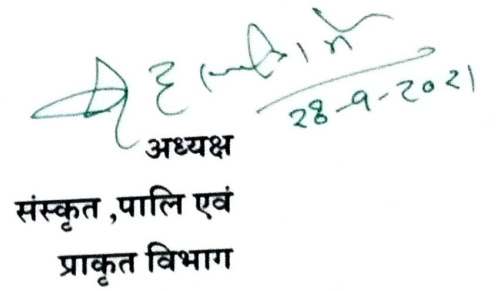 28-9-2021
अध्यक्ष
संस्कृत ,पालि एवं
प्राकृत विभाग